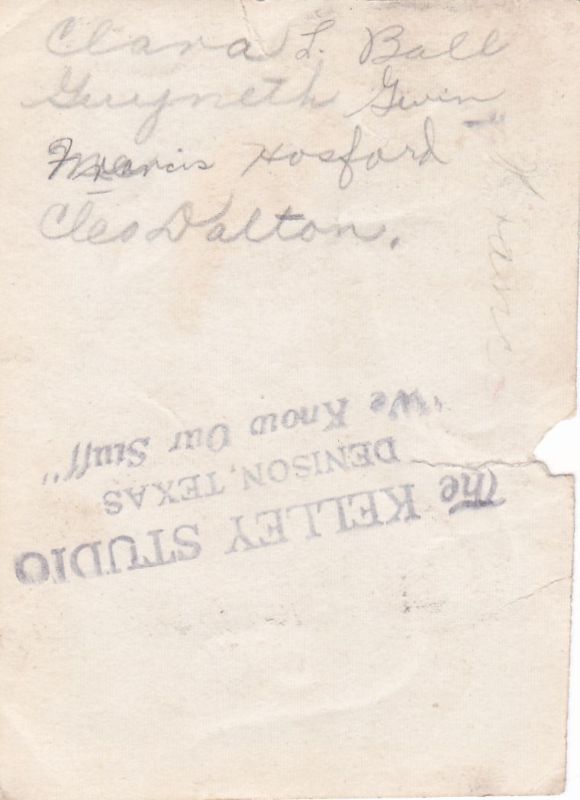 Clara L. Ball
Gwyneth Gwin
Francis Hosford
Cleo Dalton.
The KELLEY STUDIO
DENISON, TEXAS
"We Know Our Stuff"